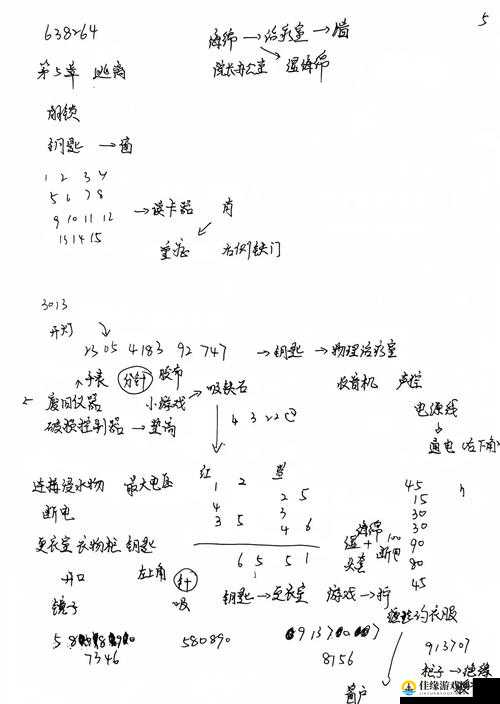 5
638264
海绵 → 治疗室 → 墙
第5章 逃离
院长办公室 湿海绵
开锁
钥匙 → 面
1 2 3 4
5 6 7 8
9 10 11 12
13 14 15
→ 读卡器
重症
右侧铁门
3013
开灯
2305 4183 92 747 → 钥匙 → 物理治疗室
手表 分针 胶布
收音机 声控
废旧仪器 小游戏 吸铁石
破损控制器 → 垫高
4 3 2 2
电源线
通电(右下角)
红
1 2
2 5
4 3
3 5 4 6
6 5 5 1
连接浸水物 最大电压
断电
45
15
30
30
90
80
45
海绵
湿 + 断电
100
头套
更衣室 衣物柜 钥匙
开口 左上角 针
吸
钥匙 → 更衣室 游戏 → 拧
镜子
衣服
580890
7346
8756
913707
窗户
佳缘游戏